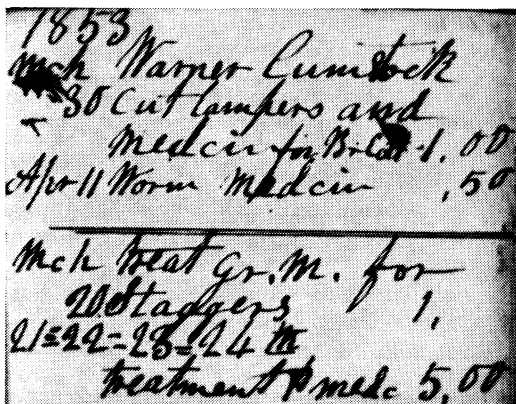 1853
Mch Warner Cumstock
30 Cut lampers and
Medcin for 1.00
Apr 11 Worm Medcin ,50
Mch treat Gr. M. for
20 Staggers 1,
21=22=23=24 th
treatment & medc 5,00